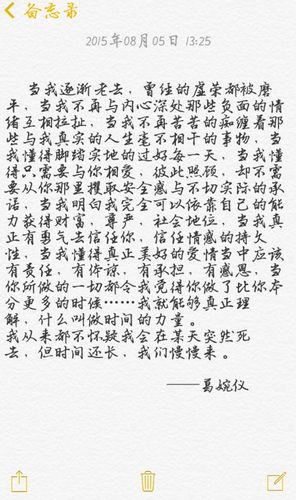 备忘录
2015年08月05日 13:25
当我逐渐老去，曾经的虚荣都被磨
平，当我不再与内心深处那些负面的情
绪互相拉扯，当我不再苦苦的痴缠着那
些与我真实的人生毫不相干的事物，当
我懂得脚踏实地的过好每一天，当我懂
得只需要与你相爱，彼此照顾，却不需
要从你那里攫取安全感与不切实际的承
诺，当我明白我完全可以依靠自己的能
力获得财富，尊严，社会地位，当我真
正有勇气去信任你，信任情感的持久
性，当我懂得真正美好的爱情当中应该
有责任，有体谅，有承担，有感恩，当
你所做的一切都令我觉得你做了比你本
分更多的时候……我就能够真正理
解，什么叫做时间的力量。
我从来都不怀疑我会在某天突然死
去，但时间还长，我们慢慢来。
——葛婉仪